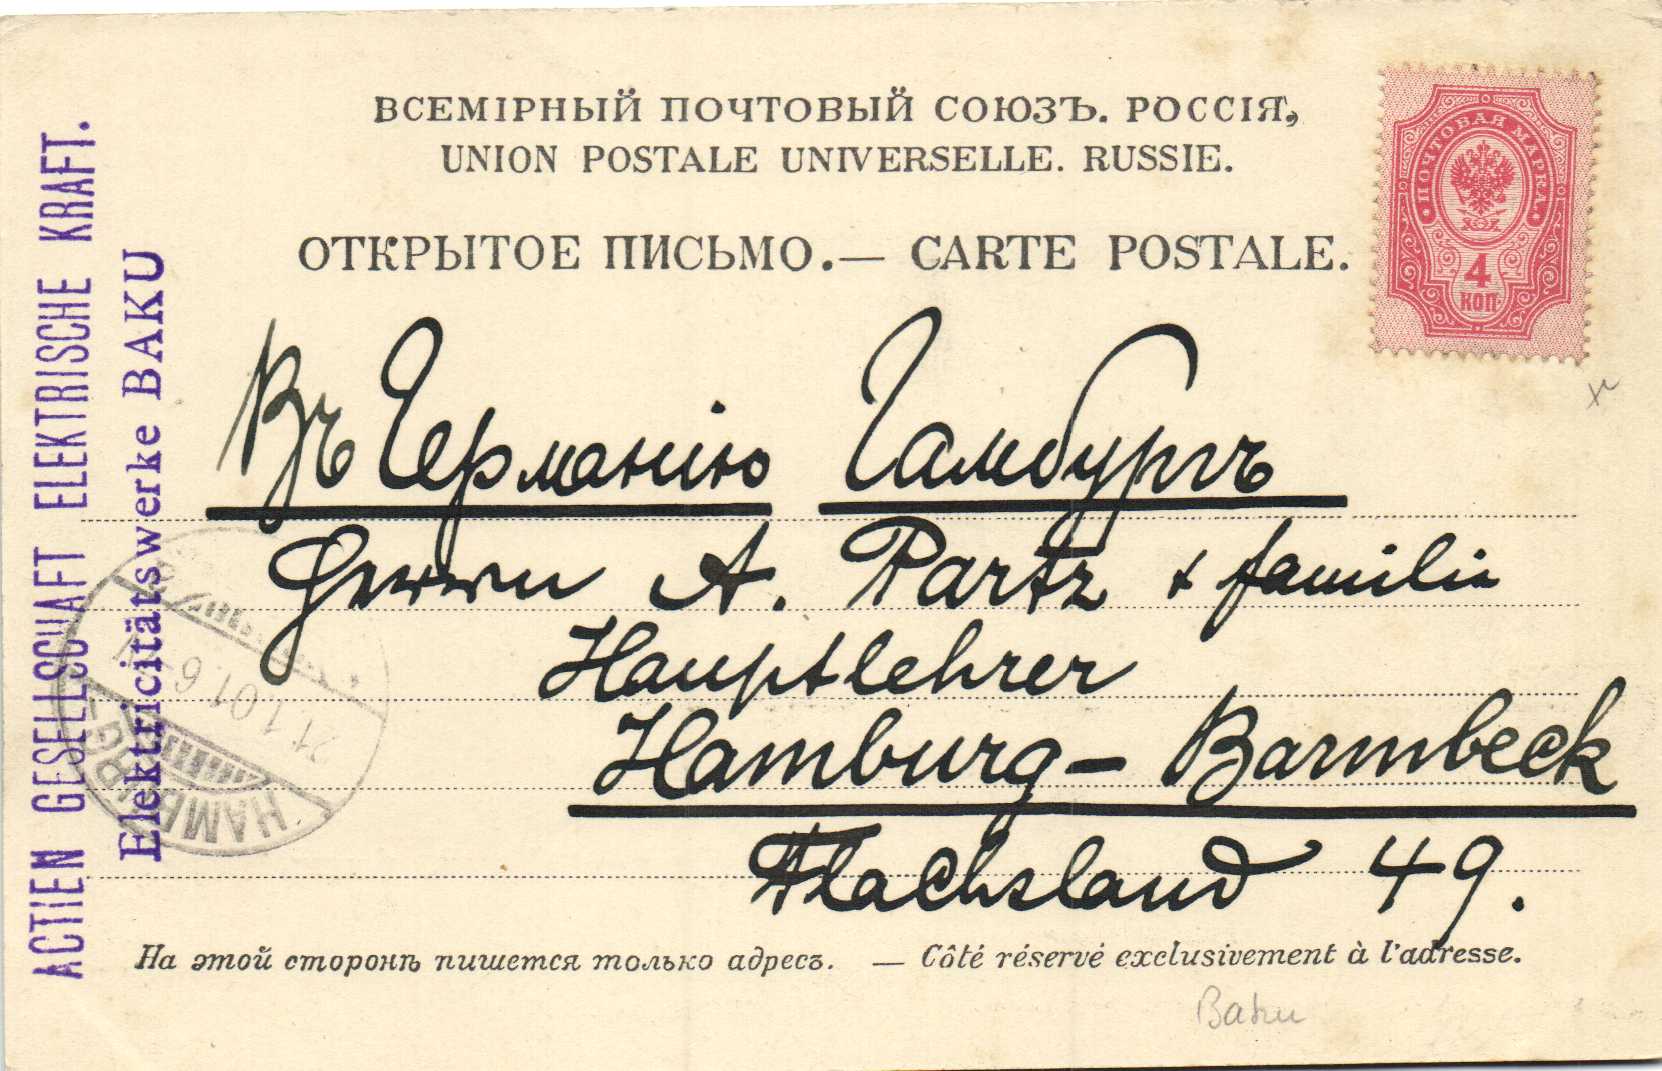 ВСЕМІРНЫЙ ПОЧТОВЫЙ СОЮЗЪ. РОССІЯ,
UNION POSTALE UNIVERSELLE. RUSSIE.
ОТКРЫТОЕ ПИСЬМО.— CARTE POSTALE.
ПОЧТОВАЯ МАРКА.
4
КОП.
ACTIEN GESELLSCHAFT ELEKTRISCHE KRAFT.
Elektricitätswerke BAKU
Въ Германію Гамбургъ
Herrn A. Partz + familie
Hauptlehrer
Hamburg - Barmbeck
Flachsland 49.
HAMBURG
21.1.01.6-7N
На этой сторонѣ пишется только адресъ. — Côté réservé exclusivement à l'adresse.
Baku